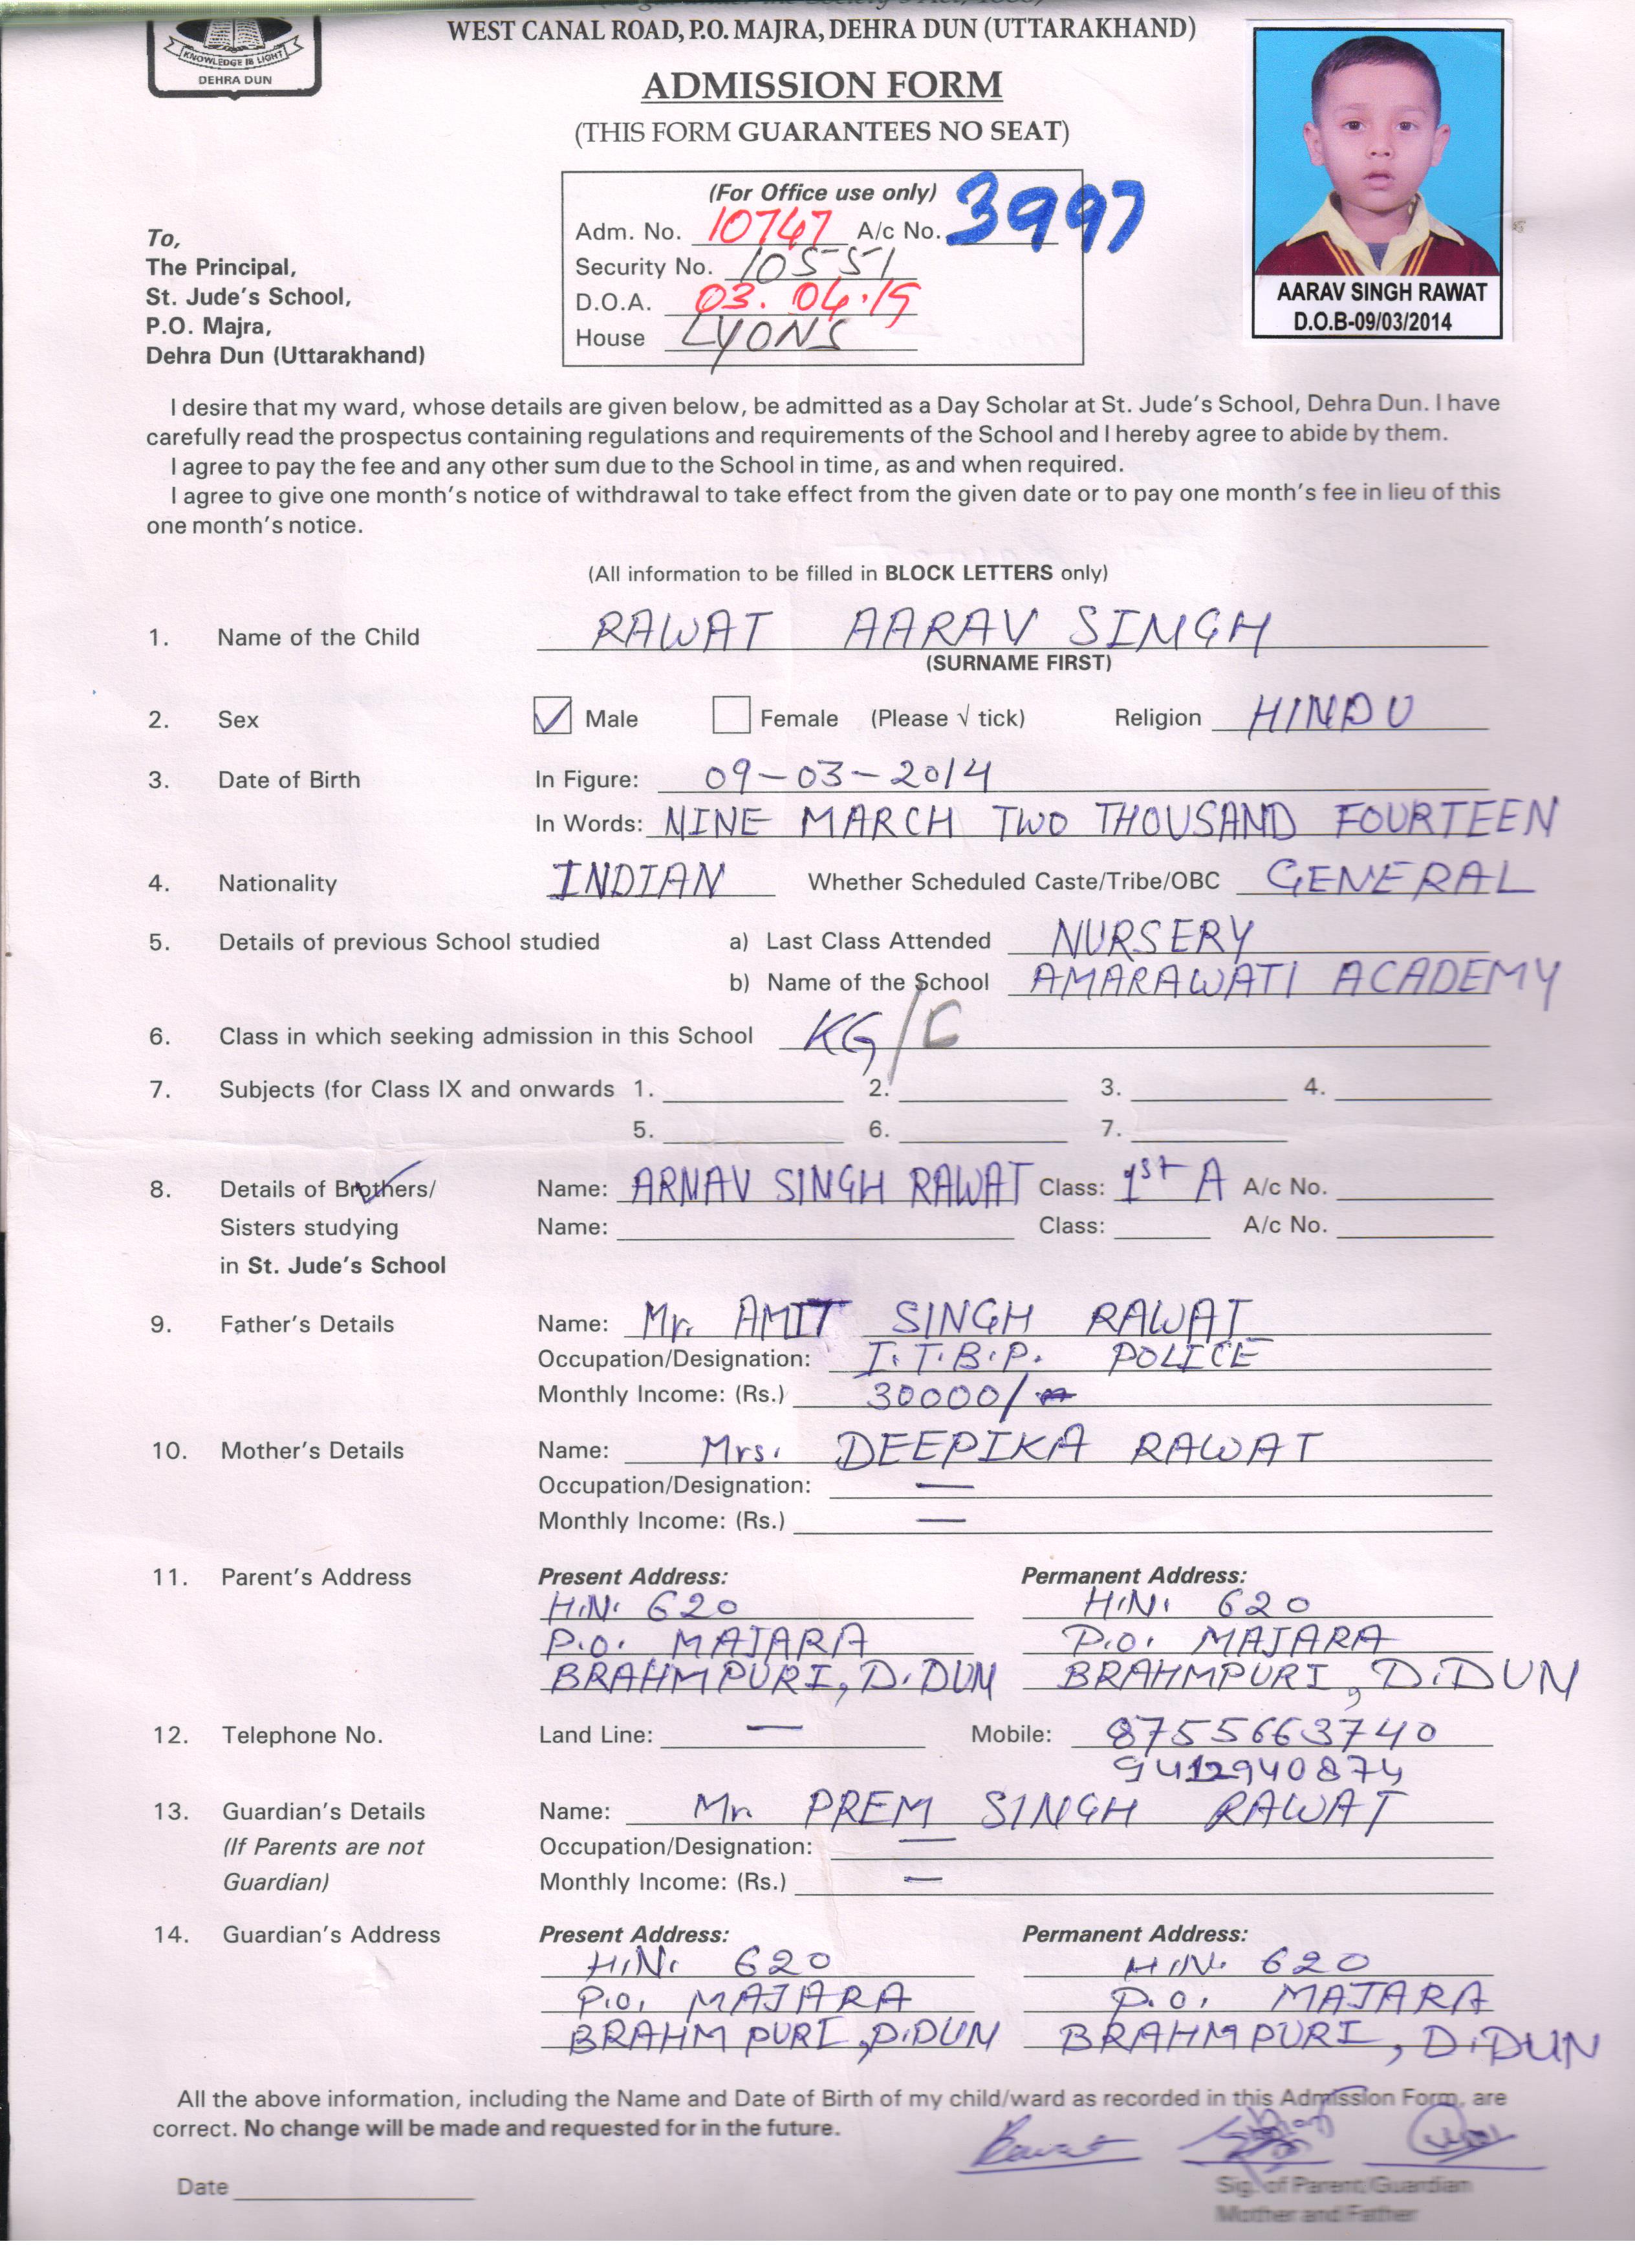 KNOWLEDGE IS LIGHT
DEHRA DUN
WEST CANAL ROAD, P.O. MAJRA, DEHRA DUN (UTTARAKHAND)
ADMISSION FORM
(THIS FORM GUARANTEES NO SEAT)
(For Office use only)
Adm. No. 10747 A/c No. 3997
Security No. 10551
D.O.A. 03.04.19
House LYONS
AARAV SINGH RAWAT
D.O.B-09/03/2014
To,
The Principal,
St. Jude's School,
P.O. Majra,
Dehra Dun (Uttarakhand)
I desire that my ward, whose details are given below, be admitted as a Day Scholar at St. Jude's School, Dehra Dun. I have
carefully read the prospectus containing regulations and requirements of the School and I hereby agree to abide by them.
I agree to pay the fee and any other sum due to the School in time, as and when required.
I agree to give one month's notice of withdrawal to take effect from the given date or to pay one month's fee in lieu of this
one month's notice.
(All information to be filled in BLOCK LETTERS only)
1. Name of the Child RAWAT AARAV SINGH
(SURNAME FIRST)
2. Sex Male Female (Please √ tick) Religion HINDU
3. Date of Birth In Figure: 09-03-2014
In Words: NINE MARCH TWO THOUSAND FOURTEEN
4. Nationality INDIAN Whether Scheduled Caste/Tribe/OBC GENERAL
5. Details of previous School studied a) Last Class Attended NURSERY
b) Name of the School AMARAWATI ACADEMY
6. Class in which seeking admission in this School KG/C
7. Subjects (for Class IX and onwards 1. 2. 3. 4.
5. 6. 7.
8. Details of Brothers/ Name: ARNAV SINGH RAWAT Class: 1st A A/c No.
Sisters studying Name: Class: A/c No.
in St. Jude's School
9. Father's Details Name: Mr. AMIT SINGH RAWAT
Occupation/Designation: I.T.B.P. POLICE
Monthly Income: (Rs.) 30000/
10. Mother's Details Name: Mrs. DEEPIKA RAWAT
Occupation/Designation: —
Monthly Income: (Rs.) —
11. Parent's Address Present Address: Permanent Address:
H.N. 620 H.N. 620
P.O. MAJARA P.O. MAJARA
BRAHMPURI, D.DUN BRAHMPURI, D.DUN
12. Telephone No. Land Line: — Mobile: 8755663740
9412940874
13. Guardian's Details Name: Mr. PREM SINGH RAWAT
(If Parents are not Occupation/Designation: —
Guardian) Monthly Income: (Rs.) —
14. Guardian's Address Present Address: Permanent Address:
H.N. 620 H.N. 620
P.O. MAJARA P.O. MAJARA
BRAHMPURI, D.DUN BRAHMPURI, D.DUN
All the above information, including the Name and Date of Birth of my child/ward as recorded in this Admission Form, are
correct. No change will be made and requested for in the future.
Date Sig. of Parent/Guardian
Mother and Father